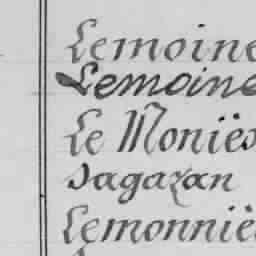 Lemoine
Lemoine
Le Moniës
Sagazan
Lemonnië